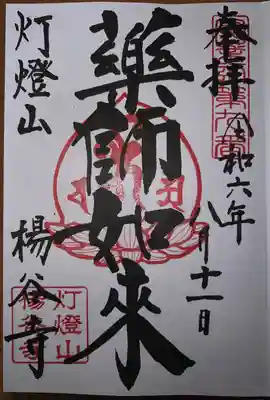 奉拝
令和六年
八月十一日
薬師如来
灯燈山
楊谷寺
灯燈山
楊谷寺